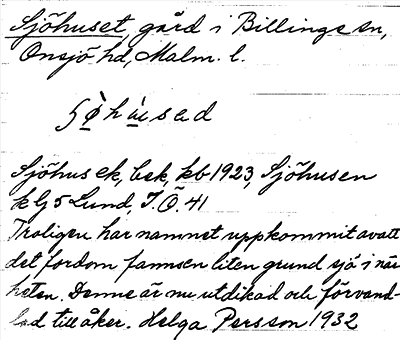 Sjöhuset, gård i Billinge sn,
Onsjö hd, Malm. l.
Sjöhus ek, bek, kb 1923, Sjöhusen
klg 5 Lund, J. Ö. 41
Troligen har namnet uppkommit av att
det fordom fanns en liten grund sjö i när
heten. Denne är nu utdikad och förvand-
lad till åker. Helga Persson 1932